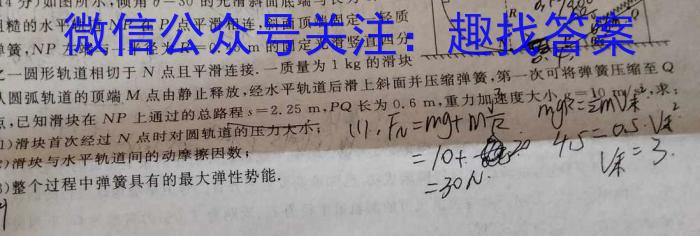 14分)如图所示,倾角θ=30°的光滑斜面底端与长
粗糙的水平 P点平滑相连,斜面顶端固定一轻质
弹簧,NP
微信公众号关注:趣找答案
之一圆形轨道相切于N点且平滑连接.一质量为1 kg的滑块
从圆弧轨道的顶端M点由静止释放,经水平轨道后滑上斜面并压缩弹簧,第一次可将弹簧压缩至Q
点,已知滑块在NP上通过的总路程s=2.25 m,PQ长为0.6 m,重力加速度大小g=10 m/s²,求:
1)滑块首次经过N点时对圆轨道的压力大小;
2)滑块与水平轨道间的动摩擦因数;
3)整个过程中弹簧具有的最大弹性势能.
(1). F_N=mg+m
=10+ 20
=30N.
mgR=½mV末²
4.5=0.5·V末²
V末=3.